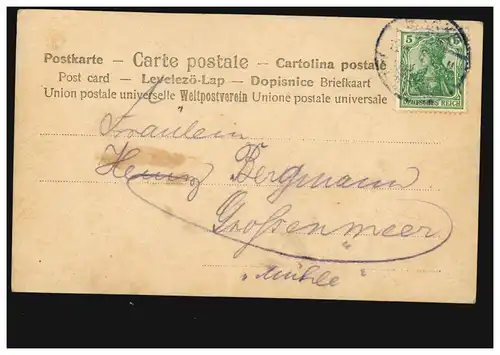 Postkarte — Carte postale — Cartolina postale
Post card — Levelező-Lap — Dopisnice Briefkaart
Union postale universelle Weltpostverein Unione postale universale
5 5
REICH
Fräulein
Bergmann
Grossenmeer
„Mühle"